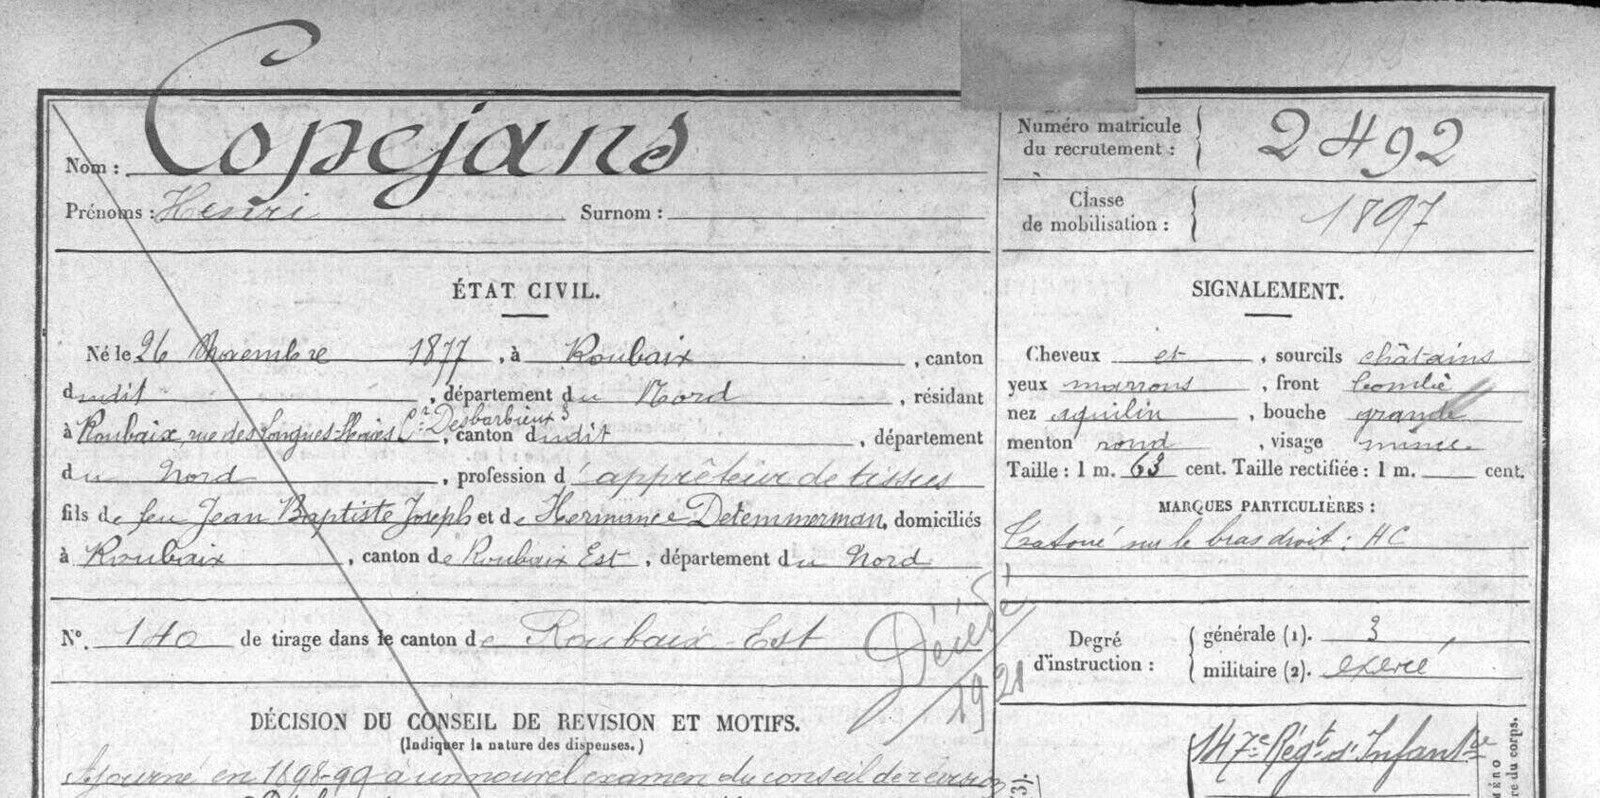 Nom : Copejans
Prénoms : Henri Surnom :
Numéro matricule du recrutement : 2492
Classe de mobilisation : 1897
ÉTAT CIVIL.
Né le 26 Novembre 1877, à Roubaix, canton
dudit, département du Nord, résidant
à Roubaix, rue des Longues-Haies Cr. Desbarbieux 3, canton dudit, département
du Nord, profession d'apprêteur de tissus
fils de feu Jean Baptiste Joseph et de Herminie Detemmerman, domiciliés
à Roubaix, canton de Roubaix Est, département du Nord
N°. 140 de tirage dans le canton de Roubaix-Est
Décédé
1921
DÉCISION DU CONSEIL DE REVISION ET MOTIFS.
(Indiquer la nature des dispenses.)
Ajourné en 1898-99 à un nouvel examen du conseil de révision
SIGNALEMENT.
Cheveux et, sourcils châtains
yeux marrons, front bombé
nez aquilin, bouche grande
menton rond, visage mince
Taille : 1 m. 63 cent. Taille rectifiée : 1 m. cent.
MARQUES PARTICULIÈRES :
Tatoué sur le bras droit : HC
Degré d'instruction :
générale (1). 3
militaire (2). exercé
147e Régt d'Infantie
(3).
MÉNO
re du corps.